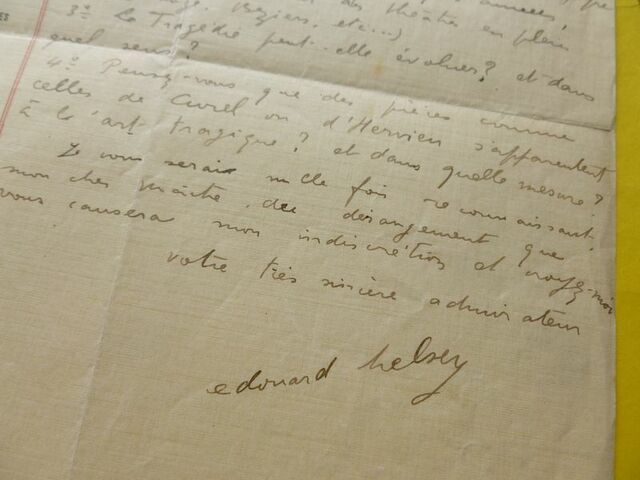 années,
du théâtre en plein
Béziers, etc...)
3º La Tragédie peut-elle évoluer? et dans
quel sens?
4º Pensez-vous que des pièces comme
celles de Curel ou d'Hervieu s'apparentent
à l'art tragique? et dans quelle mesure?
Je vous serais mille fois reconnaissant,
mon cher maître, du dérangement que
vous causera mon indiscrétion et croyez-moi
votre très sincère admirateur
edouard helsey